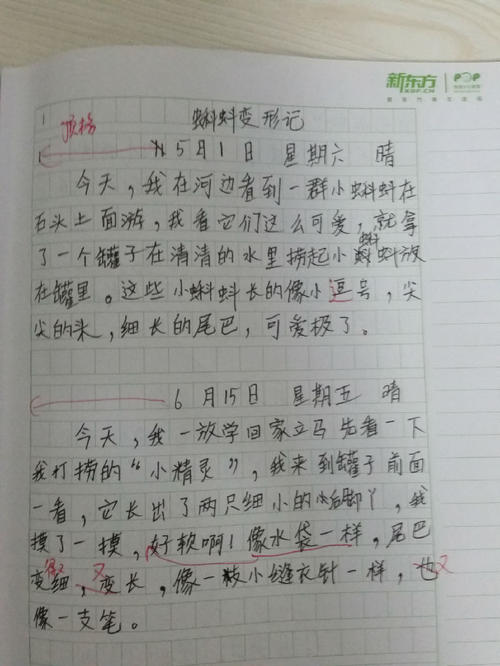 新东方
XDF.CN
POP
蝌蚪变形记
顶格
5月1日 星期六 晴
今天，我在河边看到一群小蝌蚪在
石头上面游，我看它们这么可爱，就拿
了一个罐子在清清的水里捞起小蝌蚪放
在罐里。这些小蝌蚪长的像小逗号，尖
尖的头，细长的尾巴，可爱极了。
6月15日 星期五 晴
今天，我一放学回家立马先看一下
我打捞的“小精灵”，我来到罐子前面
一看，它长出了两只细小的小后脚丫，我
摸了一摸，好软啊！像水袋一样，尾巴
变细，变长，像一枝小缝衣针一样，也又
像一支笔。